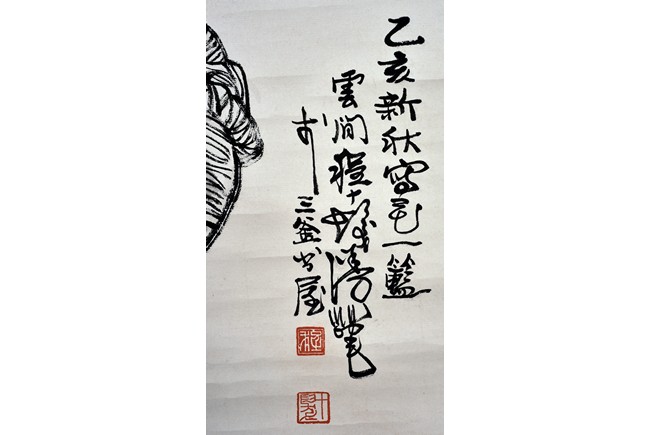 乙亥新秋寫花一籃
雲間程十髮漫筆
於三釜書屋
程